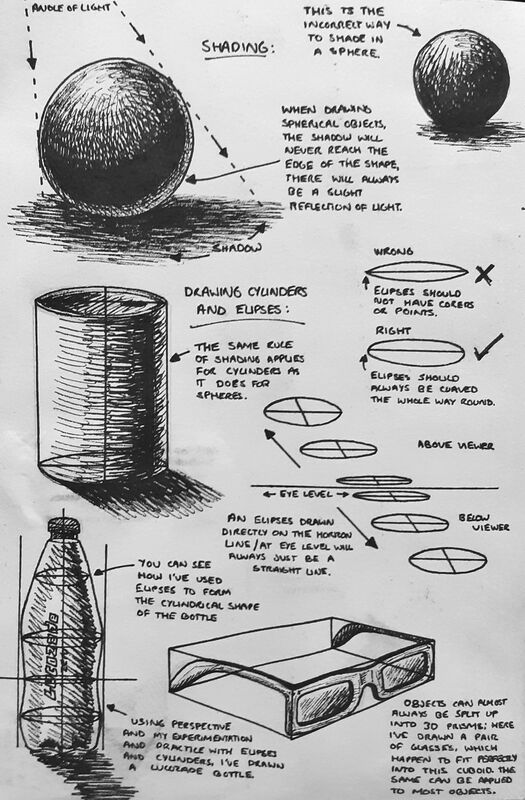 ANGLE OF LIGHT
SHADING:
THIS IS THE
INCORRECT WAY
TO SHADE IN
A SPHERE.
WHEN DRAWING
SPHERICAL OBJECTS,
THE SHADOW WILL
NEVER REACH THE
EDGE OF THE SHAPE,
THERE WILL ALWAYS
BE A SLIGHT
REFLECTION OF LIGHT.
SHADOW
DRAWING CYLINDERS
AND ELIPSES:
THE SAME RULE
OF SHADING APPLIES
FOR CYLINDERS AS
IT DOES FOR
SPHERES.
WRONG
ELIPSES SHOULD
NOT HAVE CORERS
OR POINTS.
RIGHT
ELIPSES SHOULD
ALWAYS BE CURVED
THE WHOLE WAY ROUND.
ABOVE VIEWER
EYE LEVEL
BELOW
VIEWER
AN ELIPSES DRAWN
DIRECTLY ON THE HORIZON
LINE/AT EYE LEVEL WILL
ALWAYS JUST BE A
STRAIGHT LINE.
YOU CAN SEE
HOW I'VE USED
ELIPSES TO FORM
THE CYLINDRICAL SHAPE
OF THE BOTTLE
USING PERSPECTIVE
AND MY EXPERIMENTATION
AND PRACTICE WITH ELIPSES
AND CYLINDERS, I'VE DRAWN
A LUCOZADE BOTTLE.
OBJECTS CAN ALMOST
ALWAYS BE SPLIT UP
INTO 3D PRISMS: HERE
I'VE DRAWN A PAIR
OF GLASSES, WHICH
HAPPEN TO FIT PERFECTLY
INTO THIS CUBOID. THE
SAME CAN BE APPLIED
TO MOST OBJECTS.